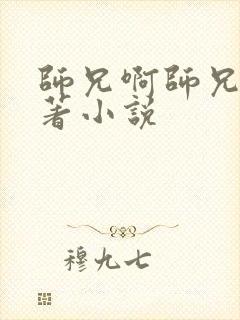 師兄啊師兄
著小説
穆九七